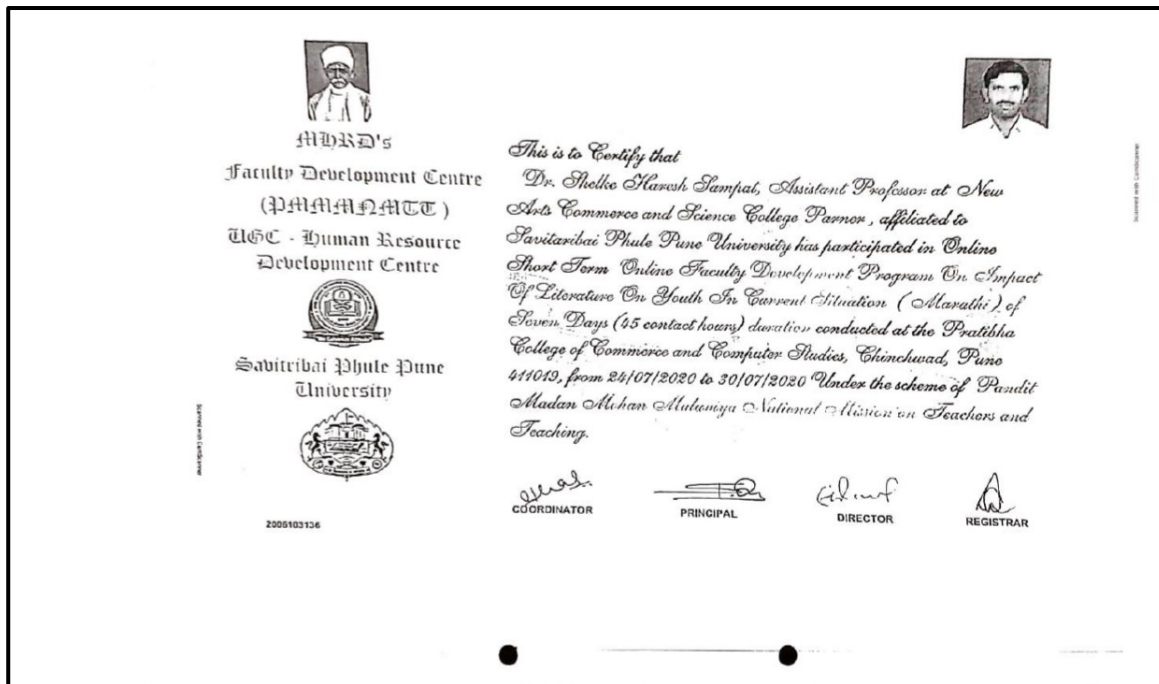 MHRD's
Faculty Development Centre
(PMMMNMTT)
UGC - Human Resource
Development Centre
Savitribai Phule Pune
University
2006103136
This is to Certify that
Dr. Shelke Haresh Sampat, Assistant Professor at New
Arts Commerce and Science College Parner, affiliated to
Savitaribai Phule Pune University has participated in Online
Short Term Online Faculty Development Program On Impact
Of Literature On Youth In Current Situation ( Marathi ) of
Seven Days (45 contact hours) duration conducted at the Pratibha
College of Commerce and Computer Studies, Chinchwad, Pune
411019, from 24/07/2020 to 30/07/2020 Under the scheme of Pandit
Madan Mohan Malaniya National Mission on Teachers and
Teaching.
COORDINATOR
PRINCIPAL
DIRECTOR
REGISTRAR
Scanned with CamScanner
Scanned with CamScanner